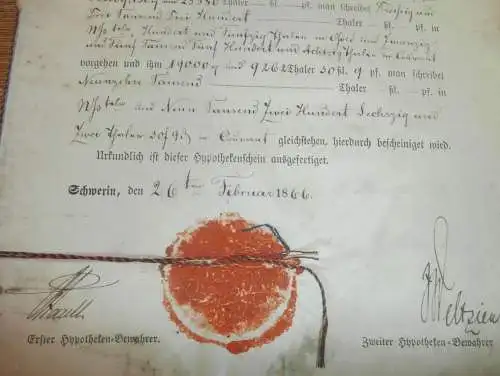 Thaler – ßl. – pf. man schreibet
Zwei Tausend Drei Hundert Thaler – ßl. – pf. in
N⅔teln, Hundert und Fünfzig Thaler in Gold und Zwanzig
und Fünf Tausend Fünf Hundert und Achtzig Thaler in Courant
vorgehen und ihm 19000 und 9262 Thaler 30 ßl. 9 pf. man schreibet
Neunzehn Tausend Thaler – ßl. – pf. in
N⅔teln und Neun Tausend Zwei Hundert Sechszig und
Zwei Thaler 30 ßl 9 Courant gleichstehen, hierdurch bescheiniget wird.
Urkundlich ist dieser Hypothekenschein ausgefertiget.
Schwerin, den 26ten Februar 1866.
Weltzien
Erster Hypotheken-Bewahrer. Zweiter Hypotheken-Bewahrer